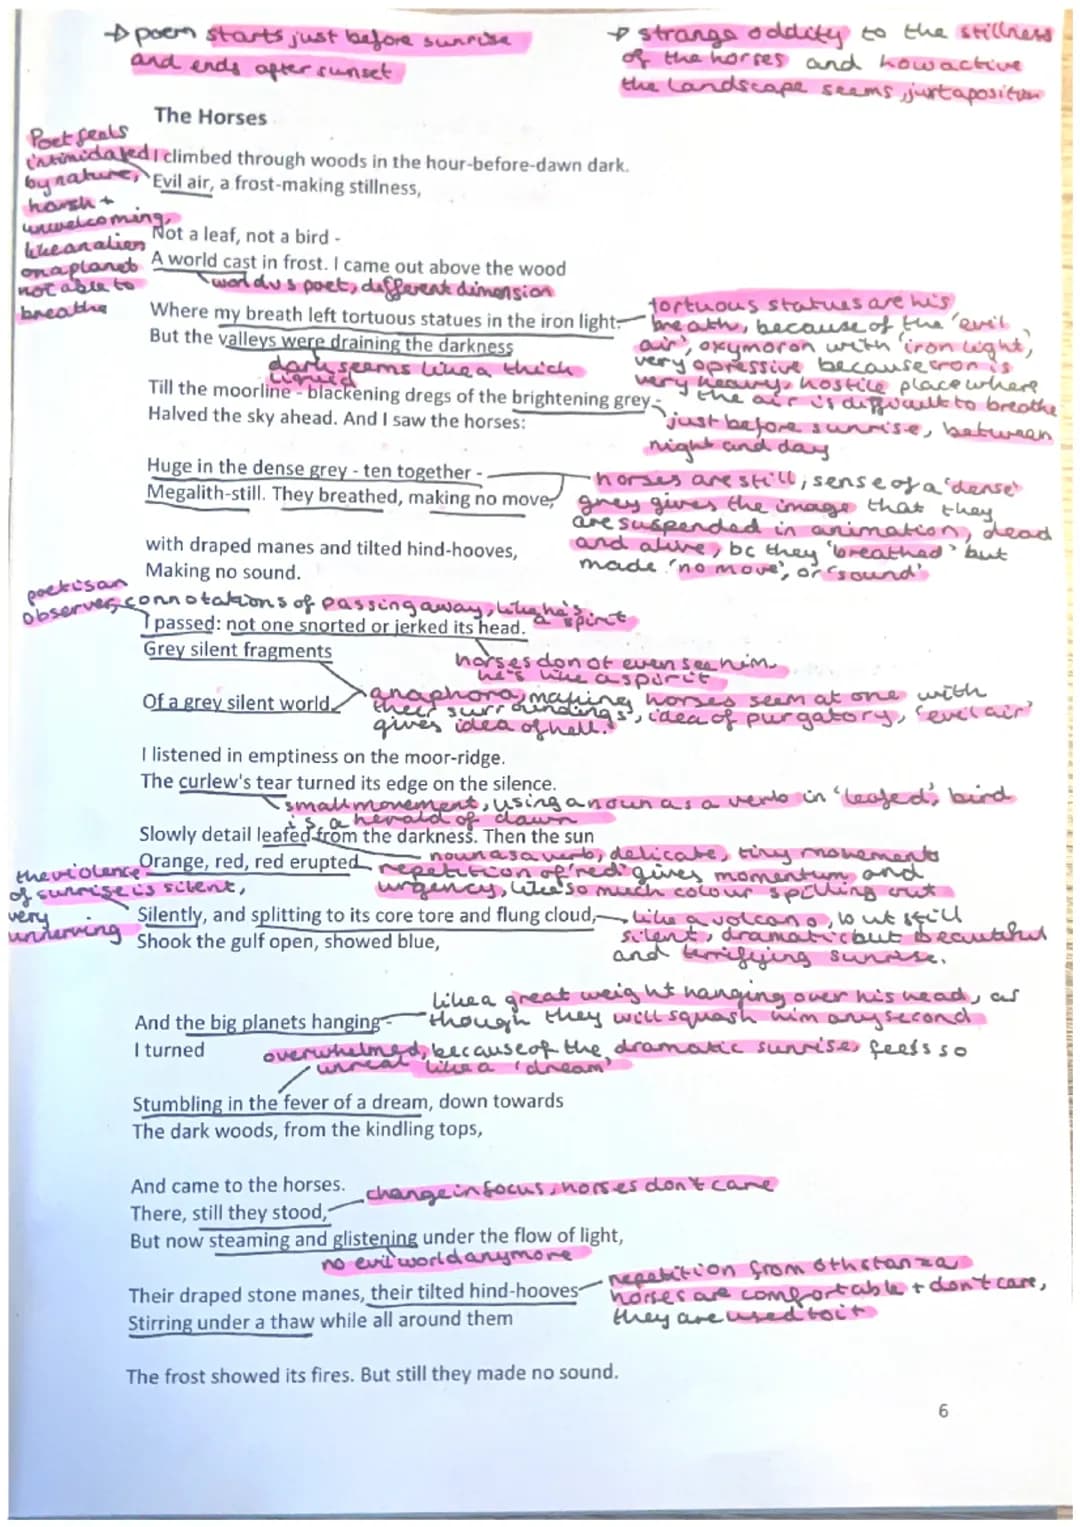 → poem starts just before sunrise
and ends after sunset
→ strange oddity to the stillness
of the horses and how active
the landscape seems, juxtaposition
The Horses
Poet feels
intimidated
by nature,
harsh +
unwelcoming,
like an alien
on a planet
not able to
breathe
I climbed through woods in the hour-before-dawn dark.
Evil air, a frost-making stillness,
Not a leaf, not a bird -
A world cast in frost. I came out above the wood
world vs poet, different dimension
Where my breath left tortuous statues in the iron light.
But the valleys were draining the darkness
tortuous statues are his
breath, because of the 'evil
air', oxymoron with 'iron light',
very opressive because iron is
very heavy, hostile place where
the air is difficult to breathe
dark seems like a thick
liquid
Till the moorline - blackening dregs of the brightening grey -
Halved the sky ahead. And I saw the horses:
just before sunrise, between
night and day
Huge in the dense grey - ten together -
Megalith-still. They breathed, making no move,
horses are still, sense of a 'dense'
grey gives the image that they
are suspended in animation, dead
and alive, bc they 'breathed' but
made 'no move', or 'sound'
with draped manes and tilted hind-hooves,
Making no sound.
poet is an
observer, connotations of passing away, like he's
a spirit
I passed: not one snorted or jerked its head.
Grey silent fragments
horses don ot even see him
he's like a spirit
Of a grey silent world.
anaphora, making horses seem at one with
their surroundings, idea of purgatory, 'evil air'
gives idea of hell.
I listened in emptiness on the moor-ridge.
The curlew's tear turned its edge on the silence.
small movement, using a noun as a verb in 'leafed', bird
is a herald of dawn
Slowly detail leafed from the darkness. Then the sun
Orange, red, red erupted
noun as a verb, delicate, tiny movements
repetition of 'red' gives momentum and
urgency, like so much colour spilling out
the violence
of sunrise is silent,
very
unnerving
Silently, and splitting to its core tore and flung cloud,
Shook the gulf open, showed blue,
like a volcano, but still
silent, dramatic but beautiful
and terrifying sunrise.
like a great weight hanging over his head, as
though they will squash him any second
And the big planets hanging -
I turned
overwhelmed, because of the dramatic sunrise, feels so
unreal like a 'dream'
Stumbling in the fever of a dream, down towards
The dark woods, from the kindling tops,
And came to the horses.
change in focus, horses don't care
There, still they stood,
But now steaming and glistening under the flow of light,
no evil world anymore
Their draped stone manes, their tilted hind-hooves
Stirring under a thaw while all around them
repetition from 6th stanza
horses are comfortable + don't care,
they are used to it
The frost showed its fires. But still they made no sound.
6